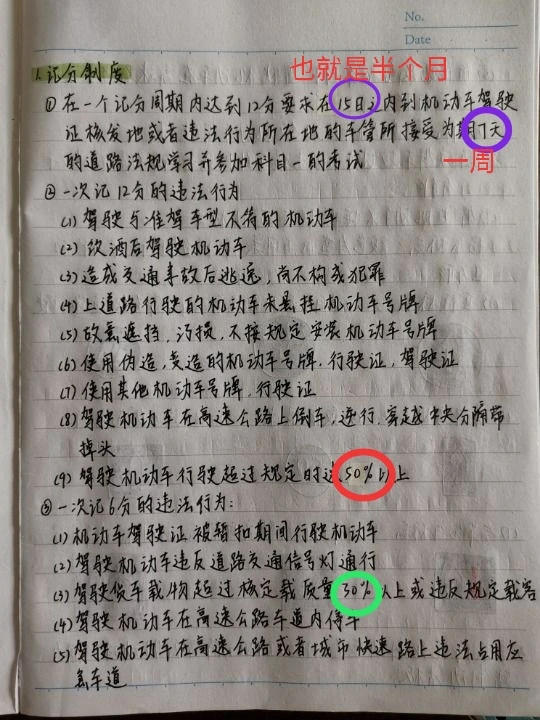 No.
Date
也就是半个月
1.记分制度
①在一个记分周期内达到12分要求在15日之内到机动车驾驶
证核发地或者违法行为所在地的车管所接受为期7天
一周
的道路法规学习并参加科目一的考试
②一次记12分的违法行为
(1)驾驶与准驾车型不符的机动车
(2)饮酒后驾驶机动车
(3)造成交通事故后逃逸,尚不构成犯罪
(4)上道路行驶的机动车未悬挂机动车号牌
(5)故意遮挡,污损,不按规定安装机动车号牌
(6)使用伪造,变造的机动车号牌,行驶证,驾驶证
(7)使用其他机动车号牌,行驶证
(8)驾驶机动车在高速公路上倒车,逆行,穿越中央分隔带
掉头
(9)驾驶机动车行驶超过规定时速50%以上
③一次记6分的违法行为:
(1)机动车驾驶证被暂扣期间行驶机动车
(2)驾驶机动车违反道路交通信号灯通行
(3)驾驶货车载物超过核定载质量30%以上或违反规定载客
(4)驾驶机动车在高速公路车道内停车
(5)驾驶机动车在高速公路或者城市快速路上违法占用应
急车道